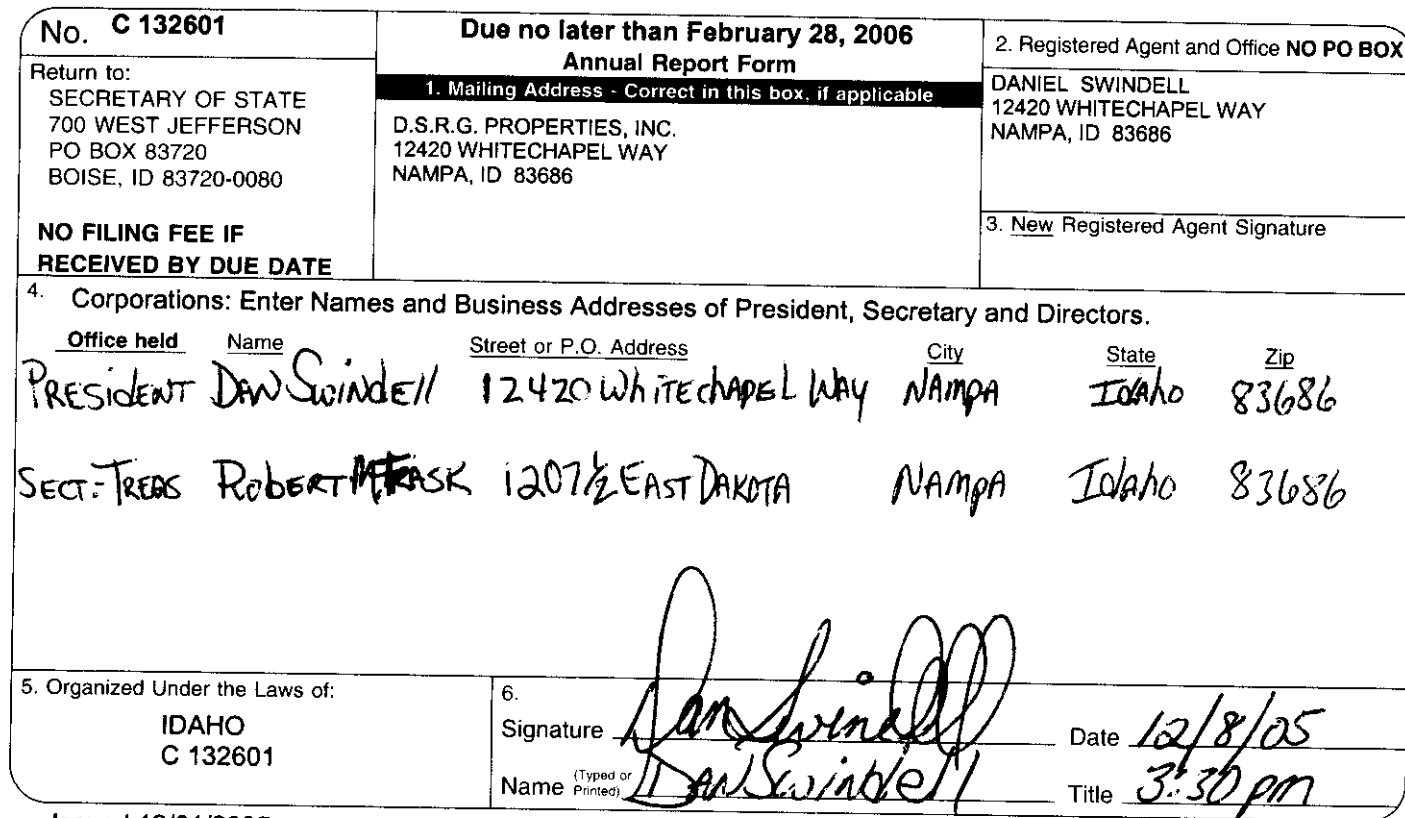 No. C 132601
Return to:
SECRETARY OF STATE
700 WEST JEFFERSON
PO BOX 83720
BOISE, ID 83720-0080
NO FILING FEE IF
RECEIVED BY DUE DATE
Due no later than February 28, 2006
Annual Report Form
1. Mailing Address - Correct in this box, if applicable
D.S.R.G. PROPERTIES, INC.
12420 WHITECHAPEL WAY
NAMPA, ID 83686
2. Registered Agent and Office NO PO BOX
DANIEL SWINDELL
12420 WHITECHAPEL WAY
NAMPA, ID 83686
3. New Registered Agent Signature
4. Corporations: Enter Names and Business Addresses of President, Secretary and Directors.
Office held Name Street or P.O. Address City State Zip
PRESIDENT DAN Swindell 12420 Whitechapel Way NAMPA Idaho 83686
SECT.-TREAS ROBERT 1207 1/2 EAST DAKOTA NAMPA Idaho 83686
5. Organized Under the Laws of:
IDAHO
C 132601
6.
Signature Dan Swindell Date 12/8/05
Name (Typed or Printed) DAN Swindell Title 3:30 pm